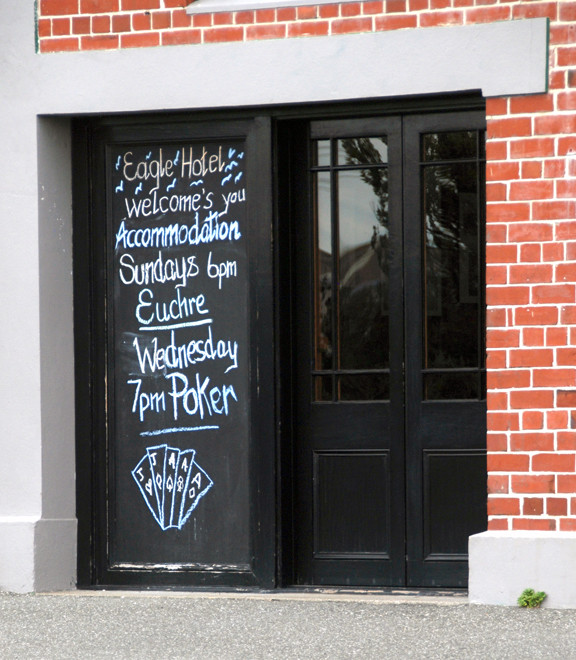 Eagle Hotel
Welcome's you
Accommodation
Sundays 6pm
Euchre
Wednesday
7pm Poker